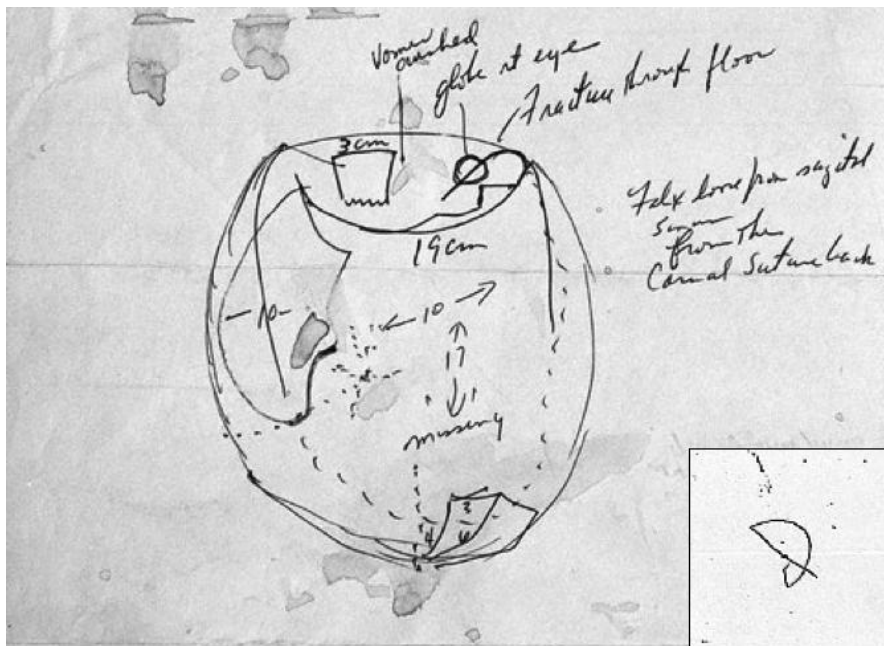 Vomer
crushed
globe rt eye
Fracture through floor
3 cm
Falx loose from sagital
sinus
from the
Coronal suture back
19 cm
10
10
17
missing
3
4
6